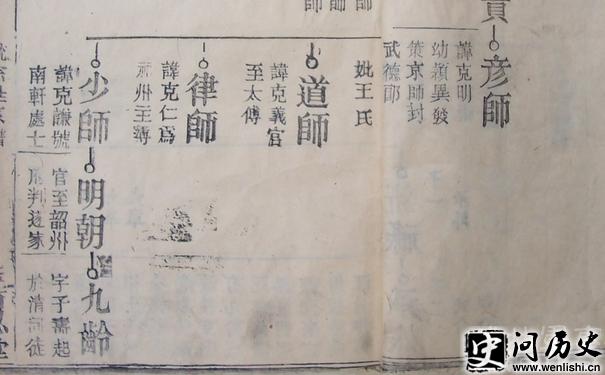 彥師
諱克明
幼穎異發
策京師封
武德郎
師
師
妣王氏
道師
諱克義官
至太傅
律師
諱克仁爲
州主簿
少師
諱克謙號
南軒處士
明朝
官至韶州
判遂家
九齡
字子壽起
於清河徒
问历史
www.wenlishi.cn